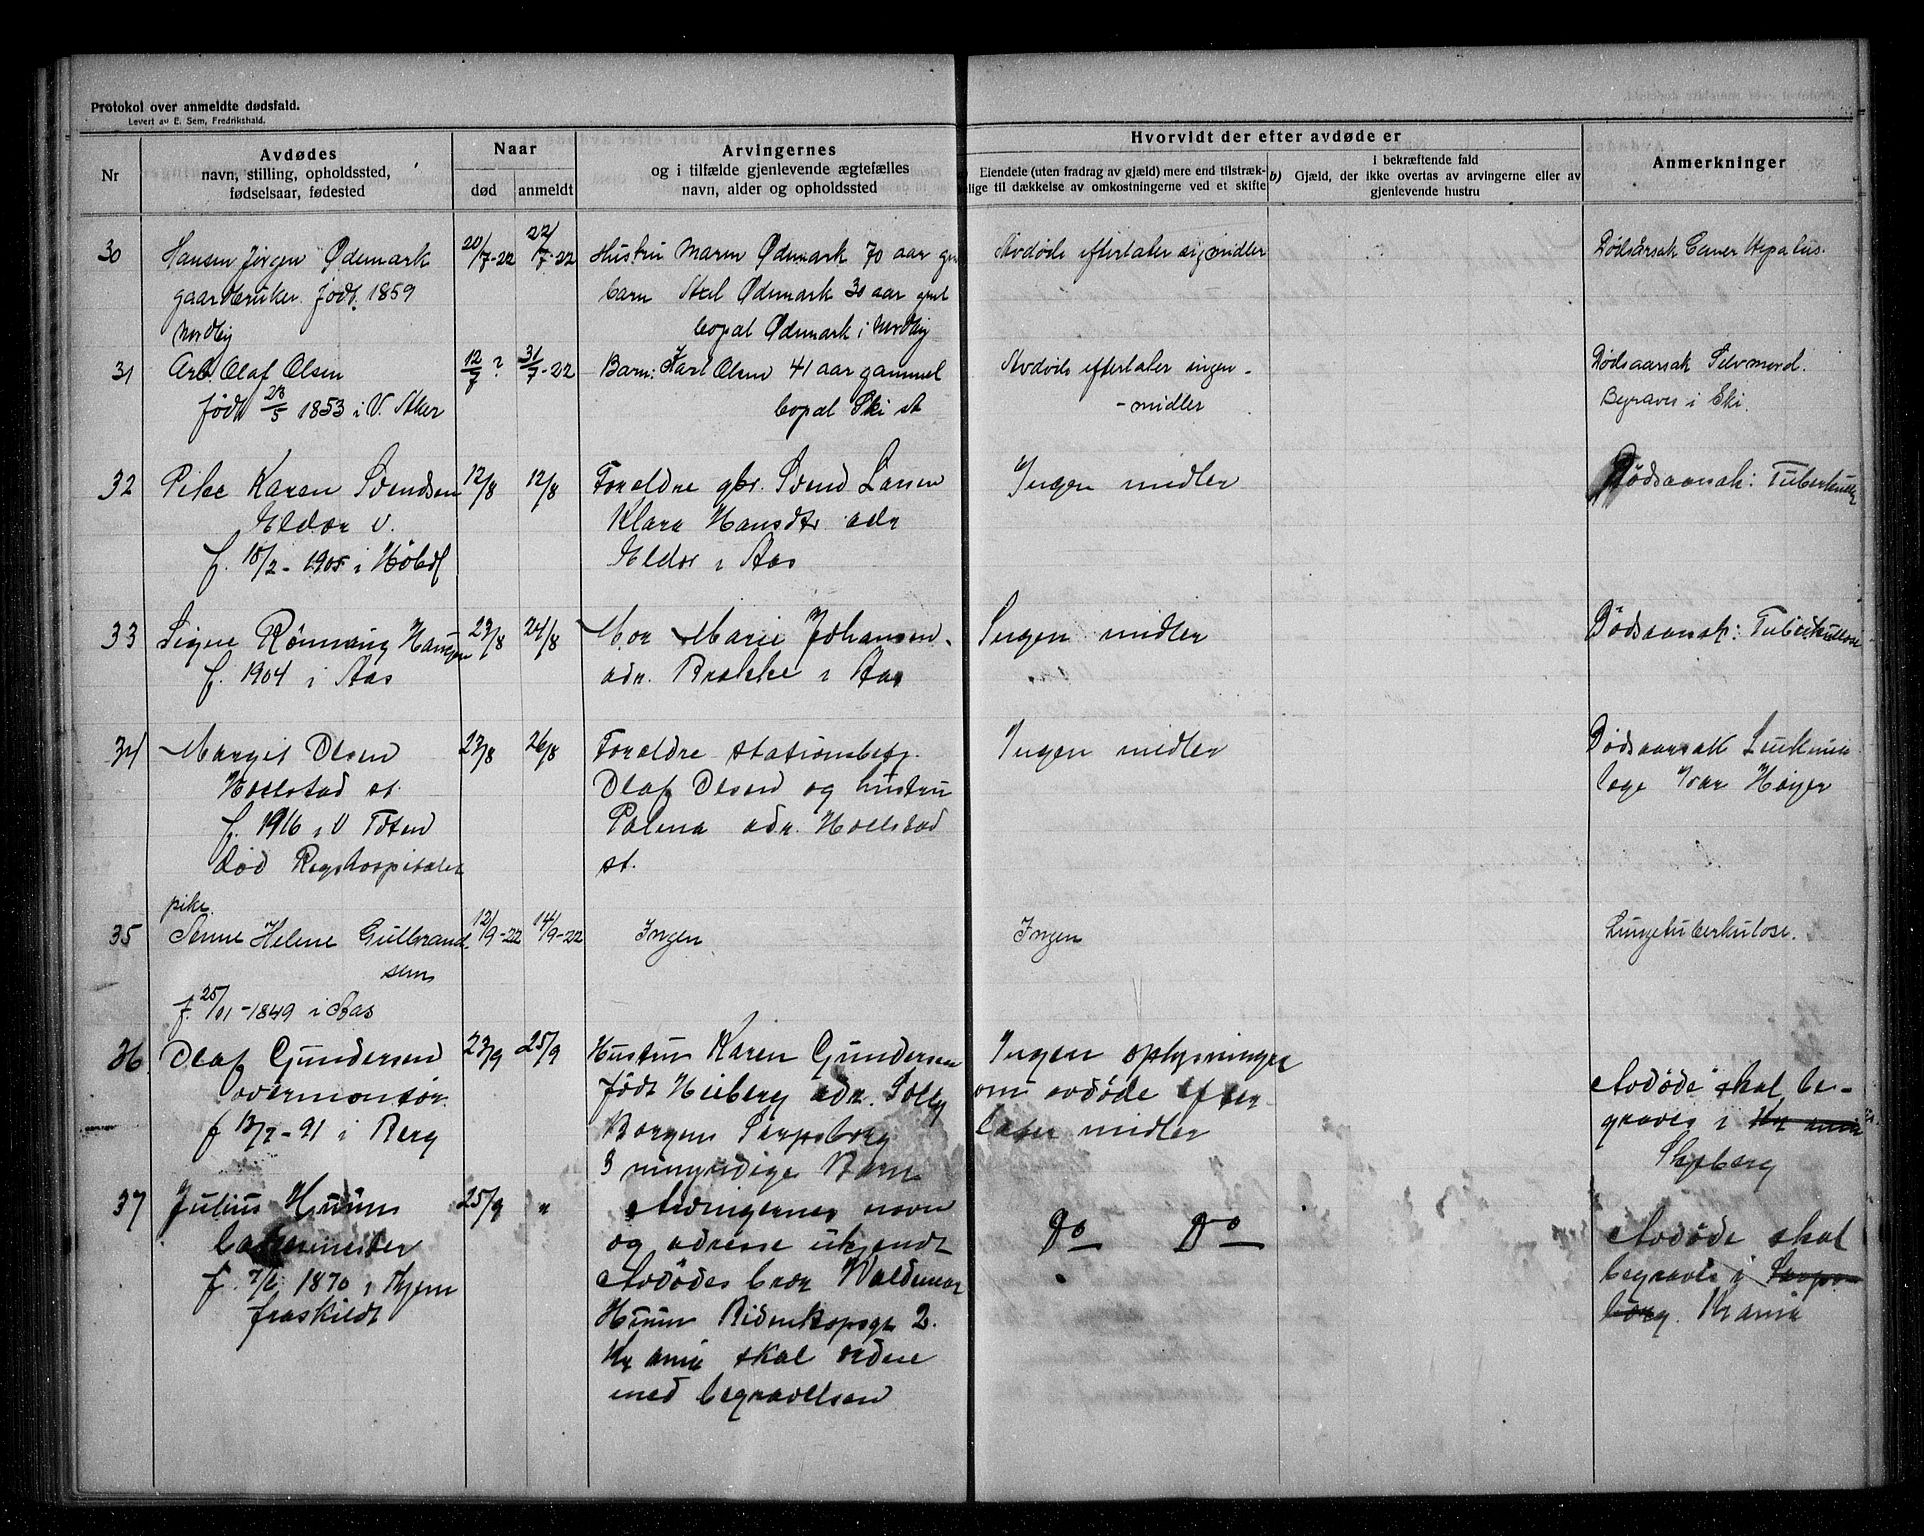 Protokol over anmeldte dødsfald.
Levert av E. Sem, Fredrikshald.
Nr
Avdødes
navn, stilling, opholdssted,
fødselsaar, fødested
Naar
død
anmeldt
Arvingernes
og i tilfælde gjenlevende ægtefælles
navn, alder og opholdssted
Hvorvidt der efter avdøde er
Eiendele (uten fradrag av gjæld) mere end tilstræk-
lige til dækkelse av omkostningerne ved et skifte
b)
I bekræftende fald
Gjæld, der ikke overtas av arvingerne eller av
gjenlevende hustru
Anmerkninger
30
Hansen Jørgen Ødemark
gaardbruker. født. 1859
Nordby
20/7-22
22/7-22
Hustru Maren Ødemark 70 aar
barn Axel Ødemark 30 aar
bopal Ødemark i Nordby
Avdøde efterlater ei midler
Dødsårsak Cancer
31
Arb. Olaf Olsen
født 28/5 1853 i V. Aker
12/7 ?
31/7-22
Barn: Karl Olsen 41 aar gammel
bopal Ski st
Avdøde efterlater ingen -
- midler
Dødsaarsak Selvmord.
Begraves i Ski.
32
Pike Karen Svendsen
Eldor v.
f. 18/2-1905 i Høbøl
12/8
12/8
Foreldre gbr. Svend Larsen
Klara Hansdtr adr
Eldor i Aas
Ingen midler
Dødsaarsak: Tuberkulose
33
Signe Rønnaug Haugen
f. 1904 i Aas
23/8
24/8
Mor Marie Johansen
adr. Brække i Aas
Ingen midler
Dødsaarsak: Tuberkulose
34
Margit Olsen
Holstad st.
f. 1916 i V Toten
død Rigshospitalet
23/8
26/8
Foreldre stationsbetj.
Olaf Olsen og hustru
Palma adr. Holstad
st.
Ingen midler
Dødsaarsak Leukemia
læge Ivar Høyer
pike.
35
Anne Helene Gulbrand
sen
f. 25/11-1849 i Aas
12/9-22
14/9-22
Ingen
Ingen
Lungetuberkulose.
36
Olaf Gundersen
overmontør
f 13/7-91 i Berg
23/9
25/9
Hustru Karen Gundersen
født Hieberg adr. Solby
Borgens Sarpsborg
3 mindreaarige Barn
Ingen oplysninger
om avdøde efter
later midler
Avdøde skal be-
graves i Kr ania
Skjeberg
37
Julius Huum
f. 7/6 1870 i Hjem
fraskildt
25/9
"
Arvingernes navn
og adresse ukjendt
Avdødes bror Waldemar
Huum 2.
Kr ania skal ordne
med begravelsen
Do Do
Avdøde skal
begraves i Sarps-
borg. Kr ania